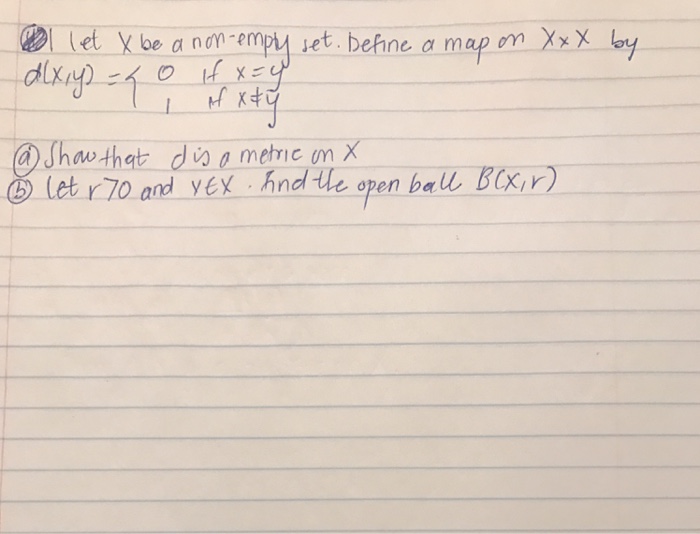 1 let X be a non-empty set. Define a map on X x X by
d(x,y) = { 0 if x = y
1 if x ≠ y
(a) Show that d is a metric on X
(b) let r > 0 and x ∈ X. find the open ball B(x,r)